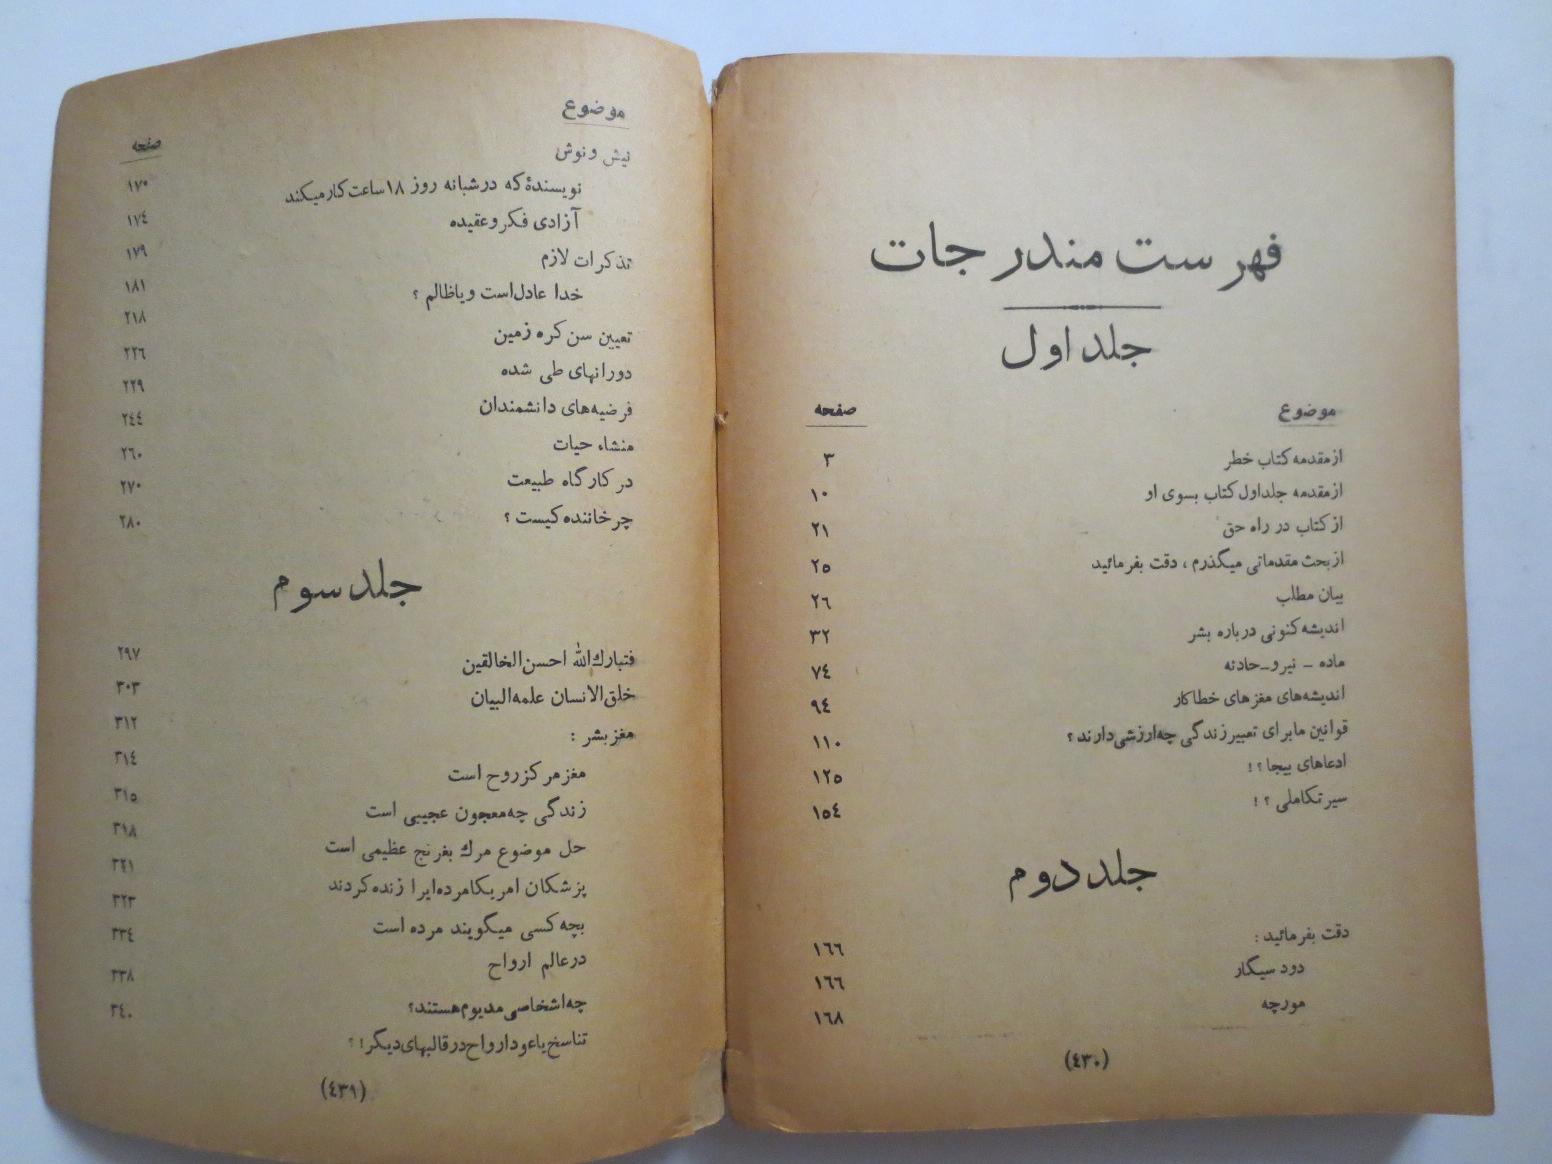 فهرست مندرجات
جلد اول
موضوع صفحه
از مقدمه کتاب خطر ۳
از مقدمه جلد اول کتاب بسوی او ۱۰
از کتاب در راه حق ۲۱
از بحث مقدماتی میگذرم ، دقت بفرمائید ۲۵
بیان مطلب ۲۶
اندیشه کنونی درباره بشر ۳۲
ماده - نیرو - حادثه ۷٤
اندیشه‌های مغزهای خطاکار ۹٤
قوانین ما برای تعبیر زندگی چه ارزشی دارند ؟ ۱۱۰
ادعاهای بیجا ؟ ! ۱۲۵
سیر تکاملی ؟ ! ۱۵٤
جلد دوم
دقت بفرمائید : ۱٦٦
دود سیگار ۱٦٦
مورچه ۱٦۸
(٤۳۰)
موضوع صفحه
نیش و نوش ۱۷۰
نویسندهٔ که در شبانه روز ۱۸ ساعت کار میکند ۱۷٤
آزادی فکر و عقیده ۱۷۹
تذکرات لازم ۱۸۱
خدا عادل است و یا ظالم ؟ ۲۱۸
تعیین سن کره زمین ۲۲٦
دورانهای طی شده ۲۲۹
فرضیه‌های دانشمندان ۲٤٤
منشاء حیات ۲٦۰
در کارگاه طبیعت ۲۷۰
چرخاننده کیست ؟ ۲۸۰
جلد سوم
فتبارك الله احسن الخالقین ۲۹۷
خلق الانسان علمه البیان ۳۰۳
مغز بشر : ۳۱۲
مغز مرکز روح است ۳۱٤
زندگی چه معجون عجیبی است ۳۱۵
حل موضوع مرك بغرنج عظیمی است ۳۱۸
پزشکان امریکا مرده‌ایرا زنده کردند ۳۲۱
بچه کسی میگویند مرده است ۳۲۳
در عالم ارواح ۳۳٤
چه اشخاصی مدیوم هستند ؟ ۳۳۸
تناسخ یا عود ارواح در قالبهای دیگر ! ؟ ۳٤۰
(٤۳۹)